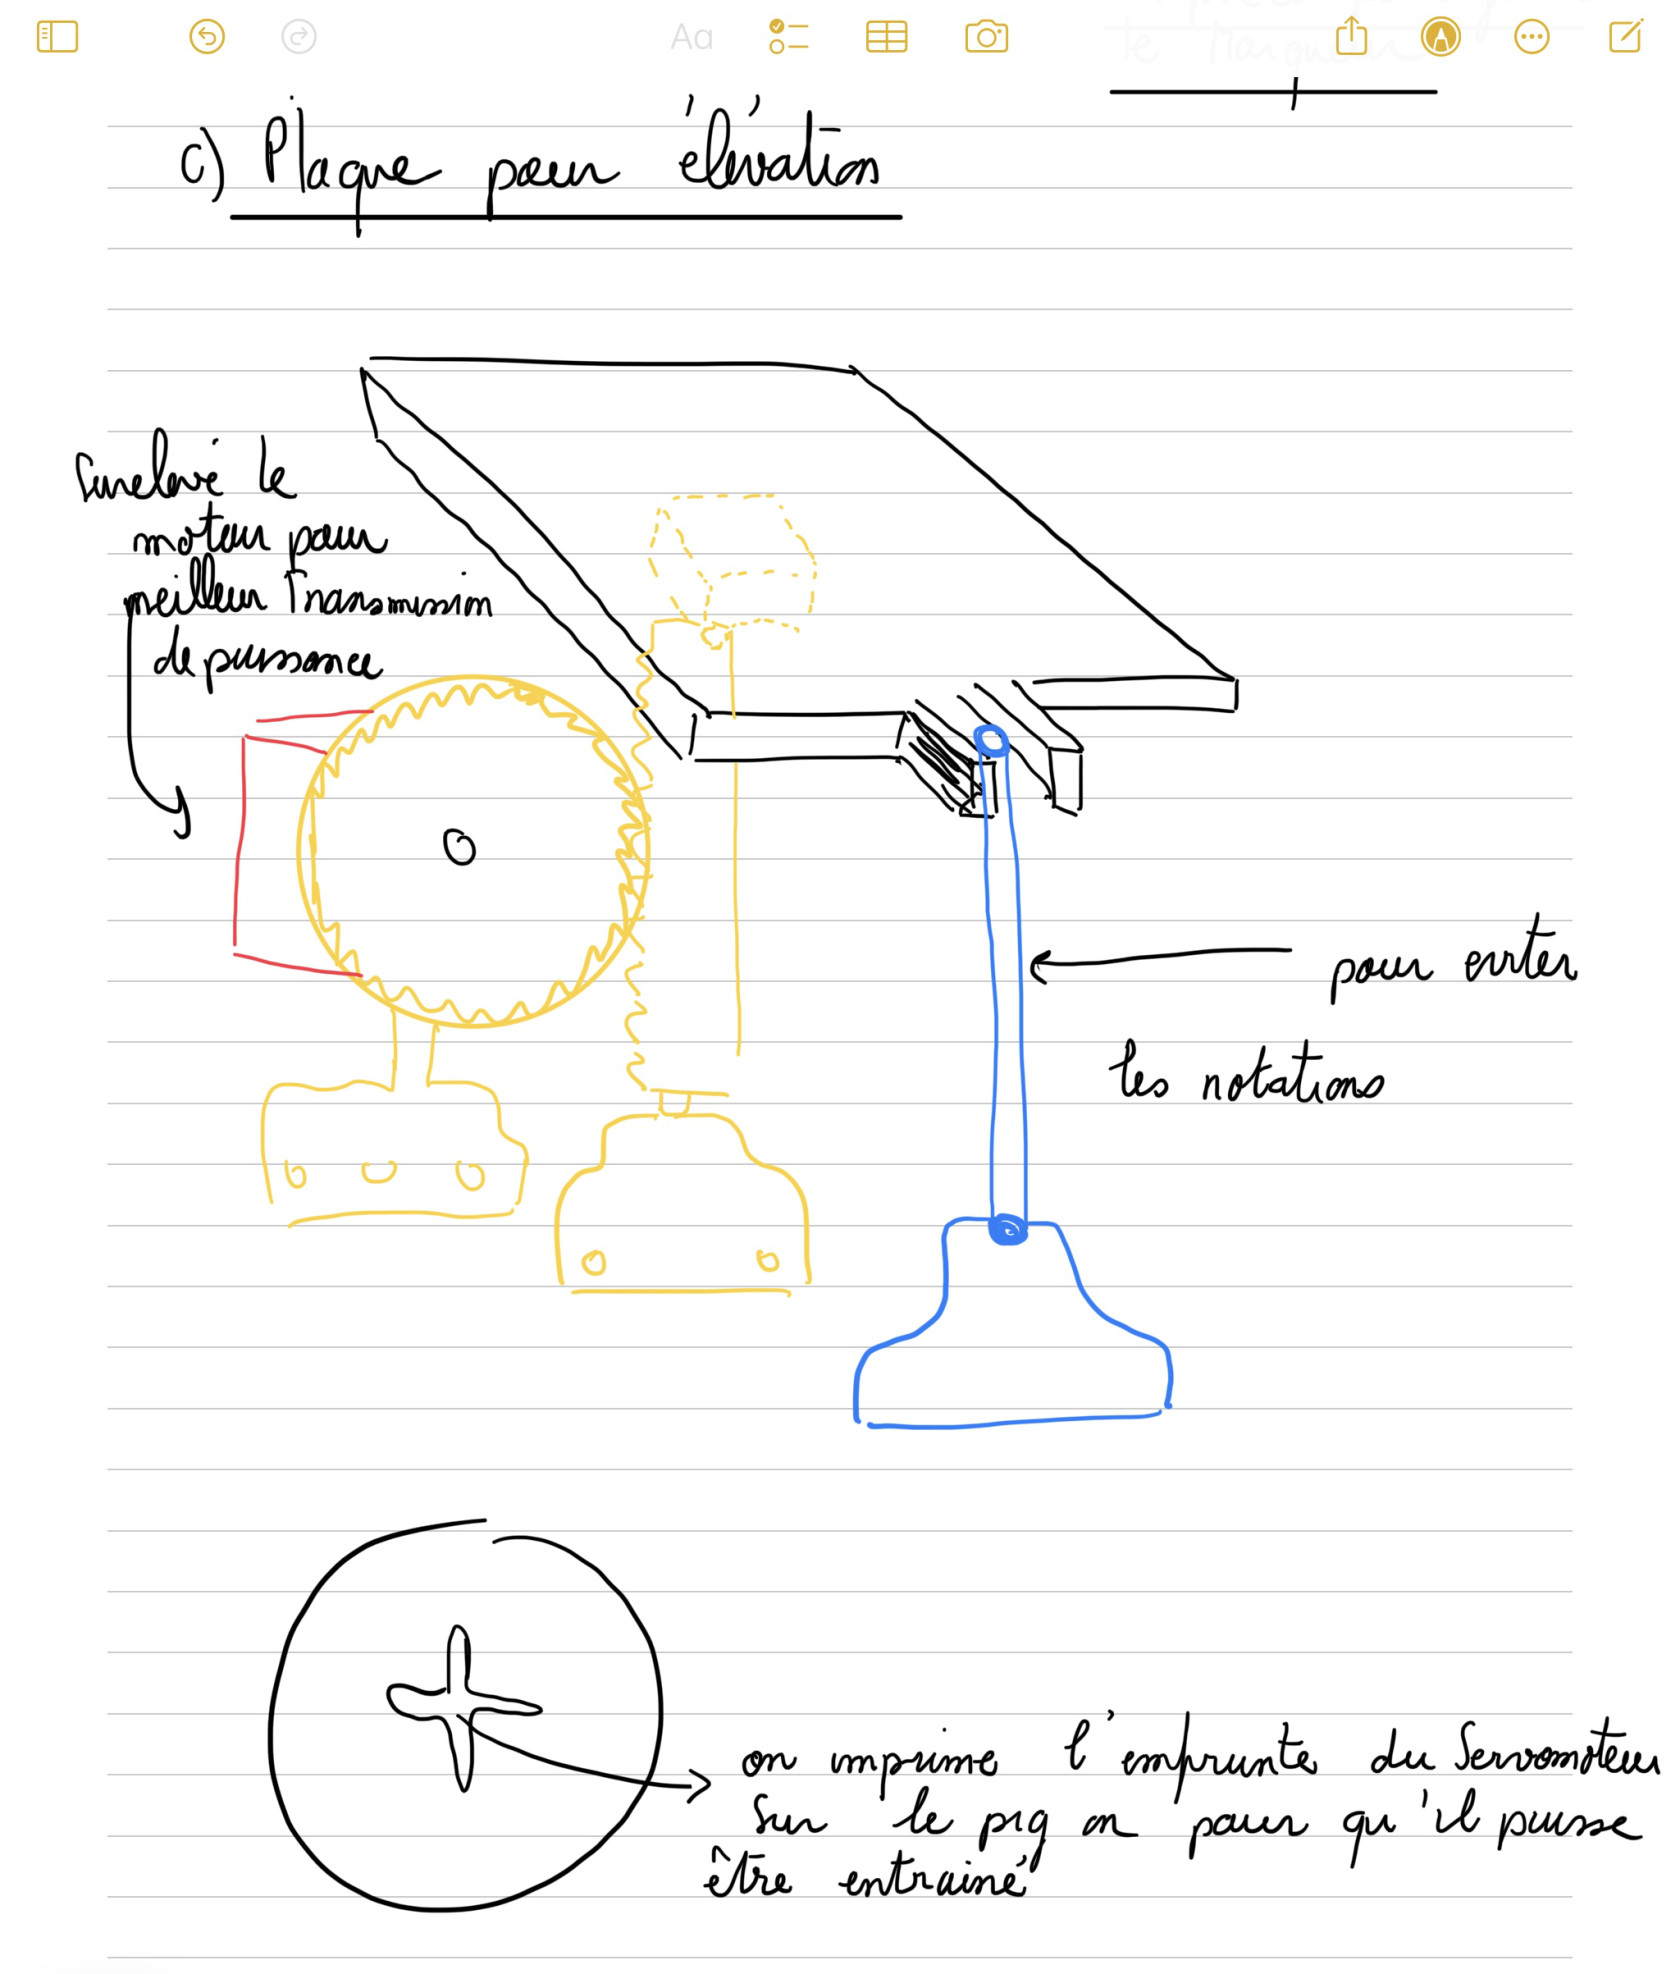 Aa
le Marqueur
c) Plaque pour élévation
Surelevé le
moteur pour
meilleur Transmission
de puissance
pour eviter
les rotations
on imprime l'emprunte du Servomoteur
Sur le pignon pour qu'il puisse
être entrainé